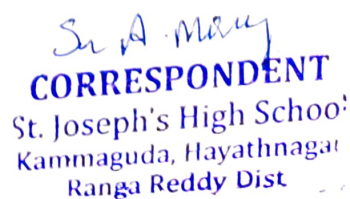 Sr A. Mary
CORRESPONDENT
St. Joseph's High School
Kammaguda, Hayathnagar
Ranga Reddy Dist